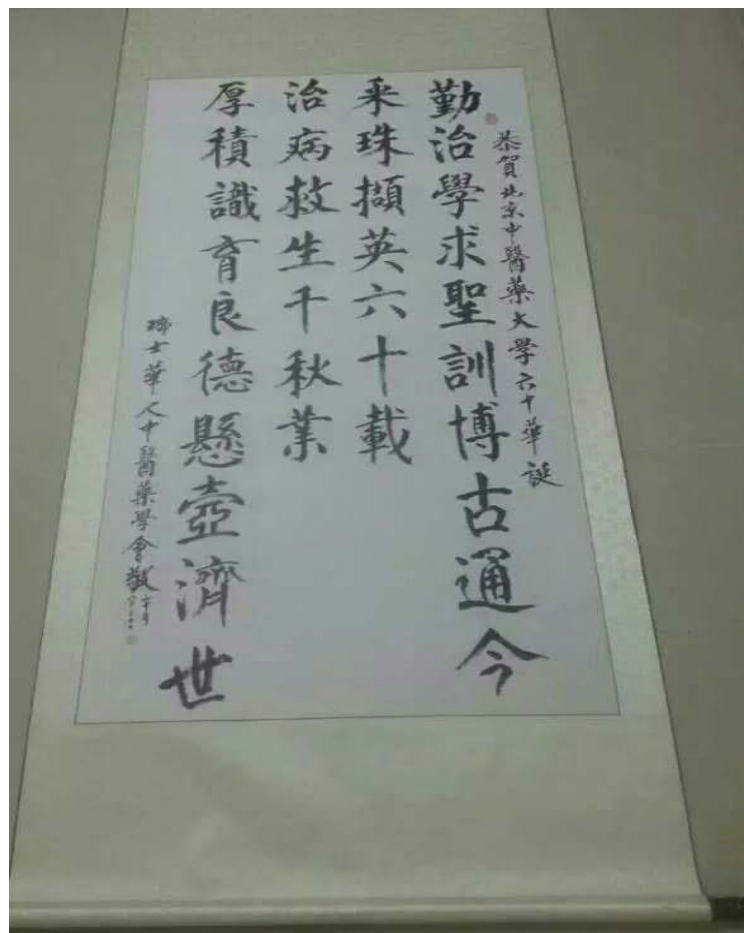 恭賀北京中醫藥大學六十華誕
勤治學求聖訓博古通今
采珠擷英六十載
治病救生千秋業
厚積識育良德懸壺濟世
瑞士華人中醫藥學會敬